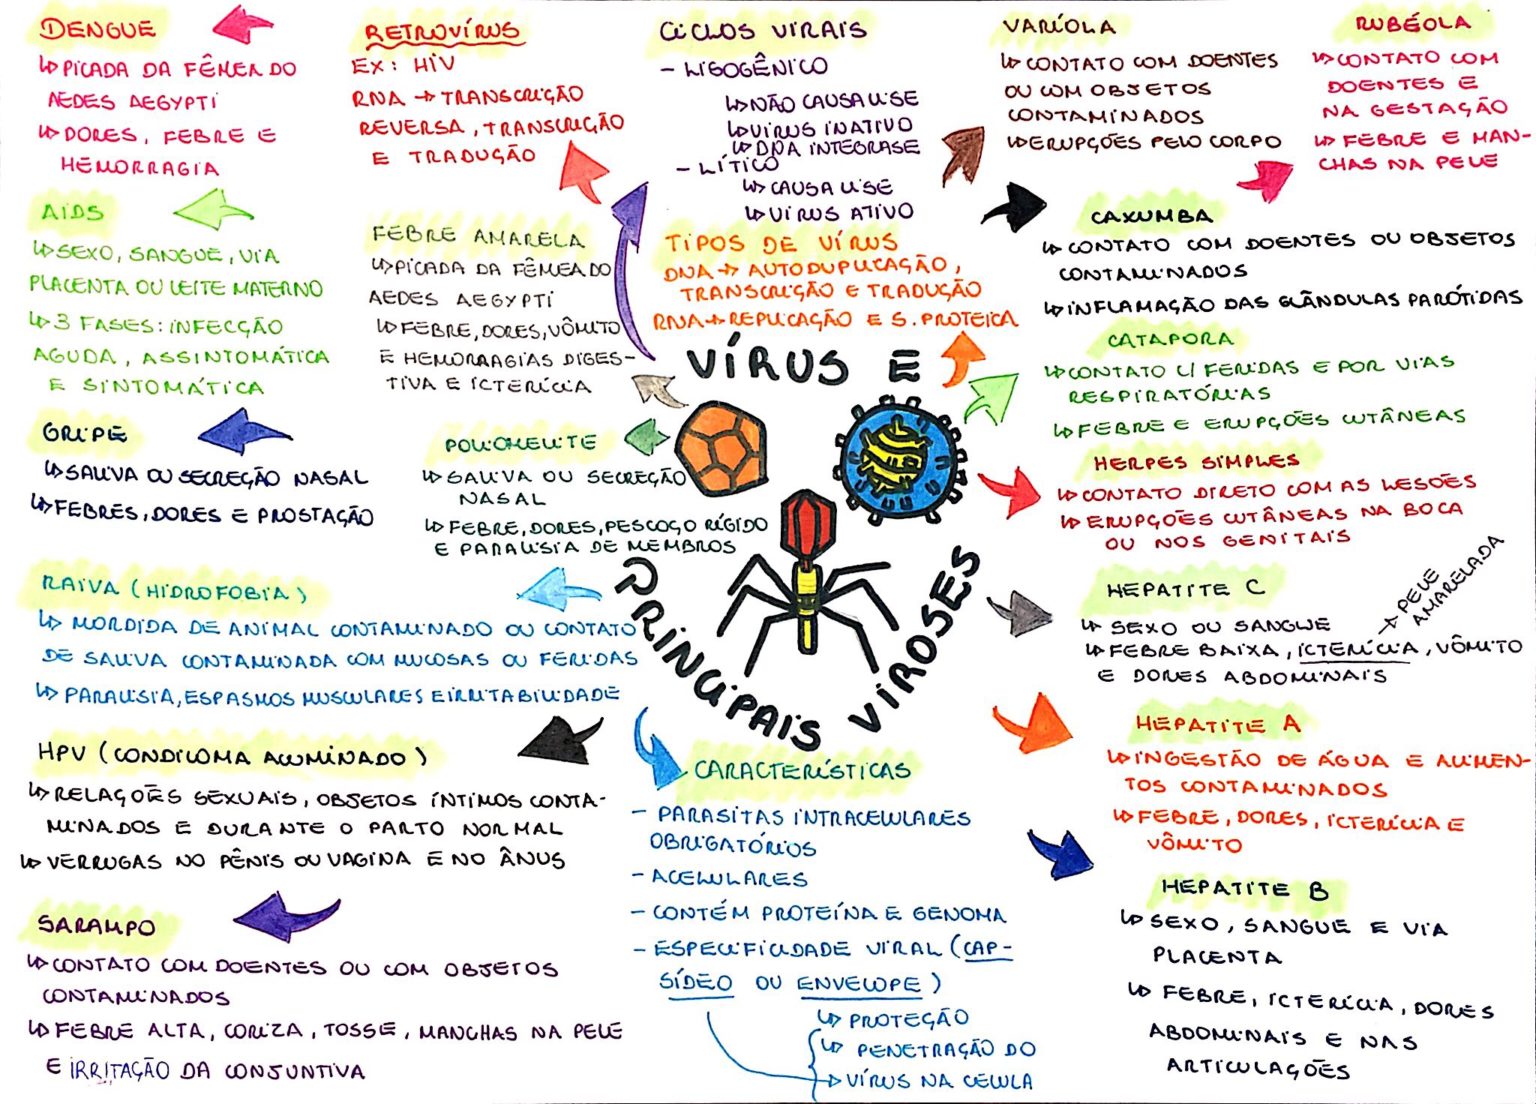 DENGUE
↳ PICADA DA FÊMEA DO
AEDES AEGYPTI
↳ DORES, FEBRE E
HEMORRAGIA
AIDS
↳ SEXO, SANGUE, VIA
PLACENTA OU LEITE MATERNO
↳ 3 FASES: INFECÇÃO
AGUDA, ASSINTOMÁTICA
E SINTOMÁTICA
GRIPE
↳ SALIVA OU SECREÇÃO NASAL
↳ FEBRES, DORES E PROSTAÇÃO
RAIVA (HIDROFOBIA)
↳ MORDIDA DE ANIMAL CONTAMINADO OU CONTATO
DE SALIVA CONTAMINADA COM MUCOSAS OU FERIDAS
↳ PARALISIA, ESPASMOS MUSCULARES E IRRITABILIDADE
HPV (CONDILOMA ACUMINADO)
↳ RELAÇÕES SEXUAIS, OBJETOS ÍNTIMOS CONTA-
MINADOS E DURANTE O PARTO NORMAL
↳ VERRUGAS NO PÊNIS OU VAGINA E NO ÂNUS
SARAMPO
↳ CONTATO COM DOENTES OU COM OBJETOS
CONTAMINADOS
↳ FEBRE ALTA, CORIZA, TOSSE, MANCHAS NA PELE
E IRRITAÇÃO DA CONJUNTIVA
RETROVÍRUS
EX: HIV
RNA → TRANSCRIÇÃO
REVERSA, TRANSCRIÇÃO
E TRADUÇÃO
FEBRE AMARELA
↳ PICADA DA FÊMEA DO
AEDES AEGYPTI
↳ FEBRE, DORES, VÔMITO
E HEMORRAGIAS DIGES-
TIVA E ICTERÍCIA
POLIOMELITE
↳ SALIVA OU SECREÇÃO
NASAL
↳ FEBRE, DORES, PESCOÇO RÍGIDO
E PARALISIA DE MEMBROS
CICLOS VIRAIS
- LISOGÊNICO
↳ NÃO CAUSA LISE
↳ VÍRUS INATIVO
↳ DNA INTEGRASE
- LÍTICO
↳ CAUSA LISE
↳ VÍRUS ATIVO
TIPOS DE VÍRUS
DNA → AUTODUPLICAÇÃO,
TRANSCRIÇÃO E TRADUÇÃO
RNA → REPLICAÇÃO E S. PROTEICA
VÍRUS E
PRINCIPAIS VIROSES
CARACTERÍSTICAS
- PARASITAS INTRACELULARES
OBRIGATÓRIOS
- ACELULARES
- CONTÉM PROTEÍNA E GENOMA
- ESPECIFICIDADE VIRAL (CAP-
SÍDEO OU ENVELOPE)
↳ PROTEÇÃO
↳ PENETRAÇÃO DO
→ VÍRUS NA CÉLULA
VARÍOLA
↳ CONTATO COM DOENTES
OU COM OBJETOS
CONTAMINADOS
↳ ERUPÇÕES PELO CORPO
RUBÉOLA
↳ CONTATO COM
DOENTES E
NA GESTAÇÃO
↳ FEBRE E MAN-
CHAS NA PELE
CAXUMBA
↳ CONTATO COM DOENTES OU OBJETOS
CONTAMINADOS
↳ INFLAMAÇÃO DAS GLÂNDULAS PARÓTIDAS
CATAPORA
↳ CONTATO C/ FERIDAS E POR VIAS
RESPIRATÓRIAS
↳ FEBRE E ERUPÇÕES CUTÂNEAS
HERPES SIMPLES
↳ CONTATO DIRETO COM AS LESÕES
↳ ERUPÇÕES CUTÂNEAS NA BOCA
OU NOS GENITAIS
HEPATITE C
↳ SEXO OU SANGUE
↳ FEBRE BAIXA, ICTERÍCIA, VÔMITO
E DORES ABDOMINAIS
→ PELE
AMARELADA
HEPATITE A
↳ INGESTÃO DE ÁGUA E ALIMEN-
TOS CONTAMINADOS
↳ FEBRE, DORES, ICTERÍCIA E
VÔMITO
HEPATITE B
↳ SEXO, SANGUE E VIA
PLACENTA
↳ FEBRE, ICTERÍCIA, DORES
ABDOMINAIS E NAS
ARTICULAÇÕES